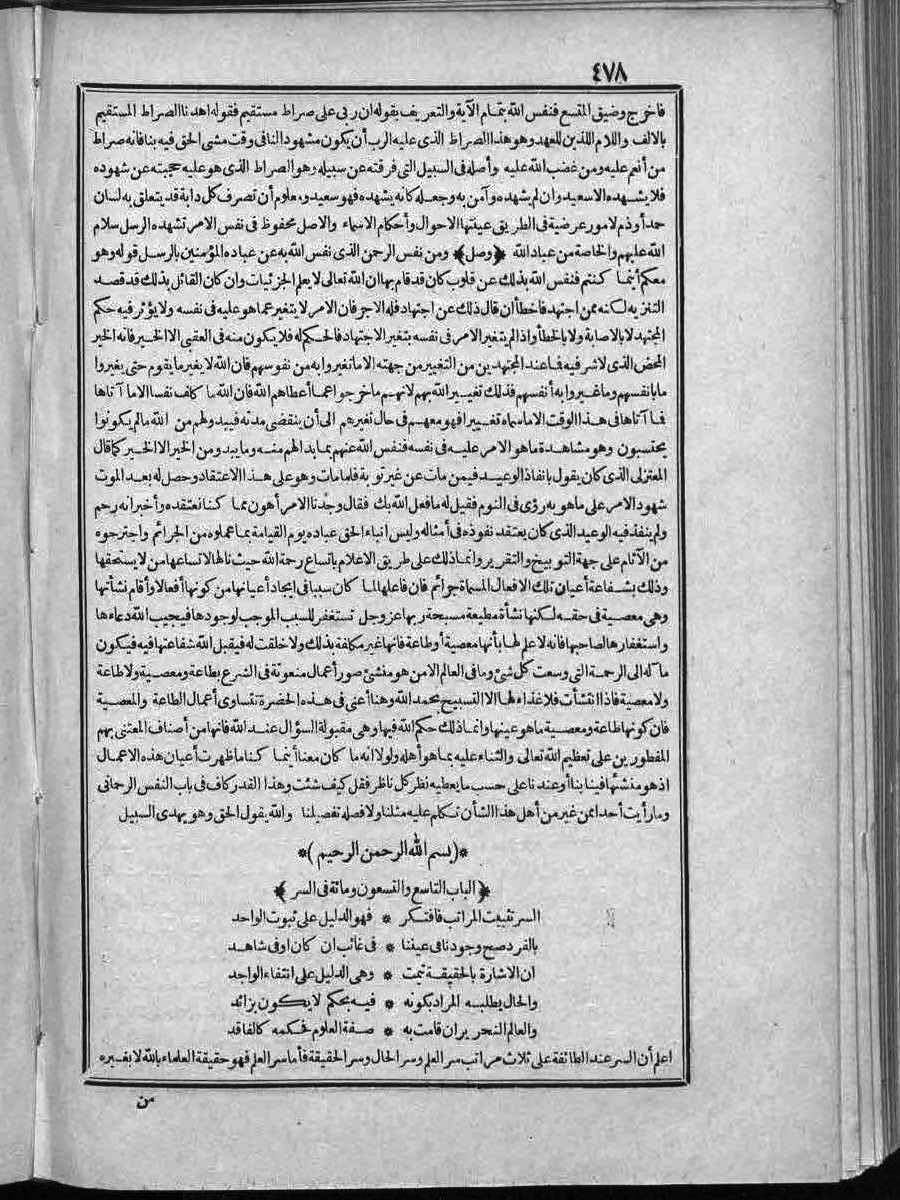 ٤٧٨
فأخرج وضيق المتسع فنفس الله بتمام الآية والتعريف بقوله ان ربى على صراط مستقيم فقوله اهدنا الصراط المستقيم
بالالف واللام اللذين للعهد وهو هذا الصراط الذى عليه الرب أن يكون مشهود النا فى وقت مشى الحق فيه بنا فانه صراط
من أنعم عليه ومن غضب الله عليه وأصله فى السبيل التى فرقته عن سبيله وهو الصراط الذى هو عليه حجبته عن شهوده
فلا يشهده الا سعيد وان لم يشهده وآمن به وجعله كانه يشهده فهو سعيد ومعلوم أن تصرف كل دابة قد يتعلق به لسان
حمد أو ذم لامور عرضية فى الطريق عينتها الاحوال وأحكام الاسماء والاصل محفوظ فى نفس الامر تشهده الرسل سلام
الله عليهم والخاصة من عباد الله ﴿وصل﴾ ومن نفس الرحمن الذى نفس الله به عن عباده المؤمنين بالرسل قوله وهو
معكم أينما كنتم فنفس الله بذلك عن قلوب كان قد قام بها ان الله تعالى لا يعلم الجزئيات وان كان القائل بذلك قد قصد
التنزيه لكنه ممن اجتهد فاخطأ ان قال ذلك عن اجتهاد فله الاجر فان الامر لا يتغير عما هو عليه فى نفسه ولا يؤثر فيه حكم
المجتهد لا بالاصابة ولا بالخطأ واذا لم يتغير الامر فى نفسه بتغير الاجتهاد فالحكم له فلا يكون منه فى العقبى الا الخير فانه الخير
المحض الذى لا شر فيه فما عند المجتهدين من التغيير من جهته الا ما تغيروا به من نفوسهم فان الله لا يغير ما بقوم حتى يغيروا
ما بانفسهم وما غيروا به أنفسهم فذلك تغيير الله بهم لانهم ما خرجوا عما أعطاهم الله فان الله ما كلف نفسا الا ما آتاها
فما آتاها فى هذا الوقت الا ما سماه تغييرا فهو معهم فى حال تغيرهم الى أن ينقضى مدته فيبدو لهم من الله ما لم يكونوا
يحتسبون وهو مشاهدة ما هو الامر عليه فى نفسه فنفس الله عنهم بما بدا لهم منه وما يبدو من الخير الا الخير كما قال
المعتزلى الذى كان يقول بانفاذ الوعيد فيمن مات عن غير توبة فلما مات وهو على هذا الاعتقاد وحصل له بعد الموت
شهود الامر على ما هو به رؤى فى النوم فقيل له ما فعل الله بك فقال وجدنا الامر أهون مما كنا نعتقده وأخبر انه رحم
ولم ينفذ فيه الوعيد الذى كان يعتقد نفوذه فى أمثاله وليس انباء الحق عباده يوم القيامة بما عملوه من الجرائم واجترحوه
من الآثام على جهة التوبيخ والتقرير وانما ذلك على طريق الاعلام باتساع رحمة الله حيث نالها لاتساعها من لا يستحقها
وذلك بشفاعة أعيان تلك الافعال المسماة جرائم فان فاعلها لما كان سببا فى ايجاد أعيانها من كونها أفعالا وأقام نشأتها
وهى معصية فى حقه لكنها نشأة مطيعة مسبحة ربها عز وجل تستغفر للسبب الموجب لوجودها فيجيب الله دعاءها
واستغفارها لصاحبها فانه لا علم لها بأنها معصية أو طاعة فانها غير مكلفة بذلك ولا خلقت له فيقبل الله شفاعتها فيه فيكون
مآله الى الرحمة التى وسعت كل شئ وما فى العالم الا من هو منشئ صور أعمال منعوتة فى الشرع بطاعة ومعصية ولا طاعة
ولا معصية فاذا انتشأت فلا غذاء لها الا التسبيح بحمد الله وهنا أعنى فى هذه الحضرة تتساوى أعمال الطاعة والمعصية
فان كونها طاعة ومعصية ما هو عينها وانما ذلك حكم الله فيها وهى مقبولة السؤال عند الله فانها من أصناف المعتنى بهم
المفطورين على تعظيم الله تعالى والثناء عليه بما هو أهله ولولا انه ما كان معنا أينما كنا ما ظهرت أعيان هذه الاعمال
اذ هو منشئها فينا بنا أو عندنا على حسب ما يعطيه نظر كل ناظر فقل كيف شئت وهذا القدر كاف فى باب النفس الرحمانى
وما رأيت أحدا ممن غبر من أهل هذا الشأن تكلم عليه مثلنا ولا فصله تفصيلنا والله يقول الحق وهو يهدى السبيل
*(بسم الله الرحمن الرحيم)*
﴿الباب التاسع والتسعون ومائة فى السر﴾
السر تثبيت المراتب فافتكر * فهو الدليل على ثبوت الواحد
بالفرد صح وجودنا فى عيننا * فى غائب ان كان أو فى شاهد
ان الاشارة بالحقيقة تيمت * وهى الدليل على انتفاء الواجد
والحال يطلبه المراد بكونه * فيه بحكم لا يكون بزائد
والعالم النحرير ان قامت به * صفة العلوم فحكمه كالفاقد
اعلم أن السر عند الطائفة على ثلاث مراتب سر العلم وسر الحال وسر الحقيقة فأما سر العلم فهو حقيقة العلماء بالله لا بغيره
من